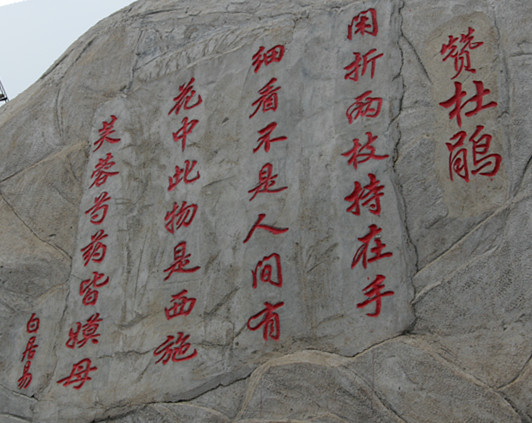 赞杜鹃
闲折两枝持在手
细看不是人间有
花中此物是西施
芙蓉芍药皆嫫母
白居易